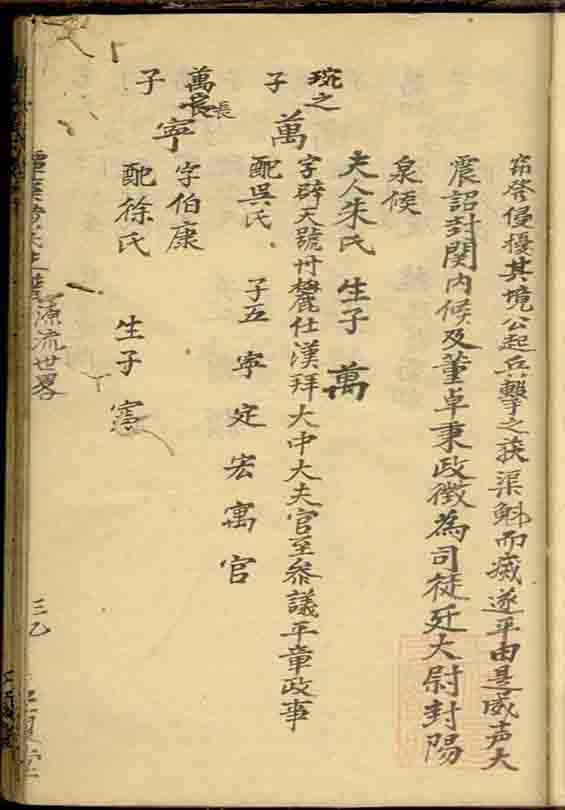 竊發侵擾其境公起兵擊之获渠魁而瘯遂平由是威声大
震詔封関内候及董卓秉政徵為司徒廷大尉封陽
泉候
夫人朱氏 生子 萬
琬之子 萬
字辟天號卄麓仕漢拜大中大夫官至叅議平章政事
配吳氏 子五 寧 定 宏 寓 官
萬長子 寧
長
字伯康
配徐氏 生子 憲
源流世畧
三乙